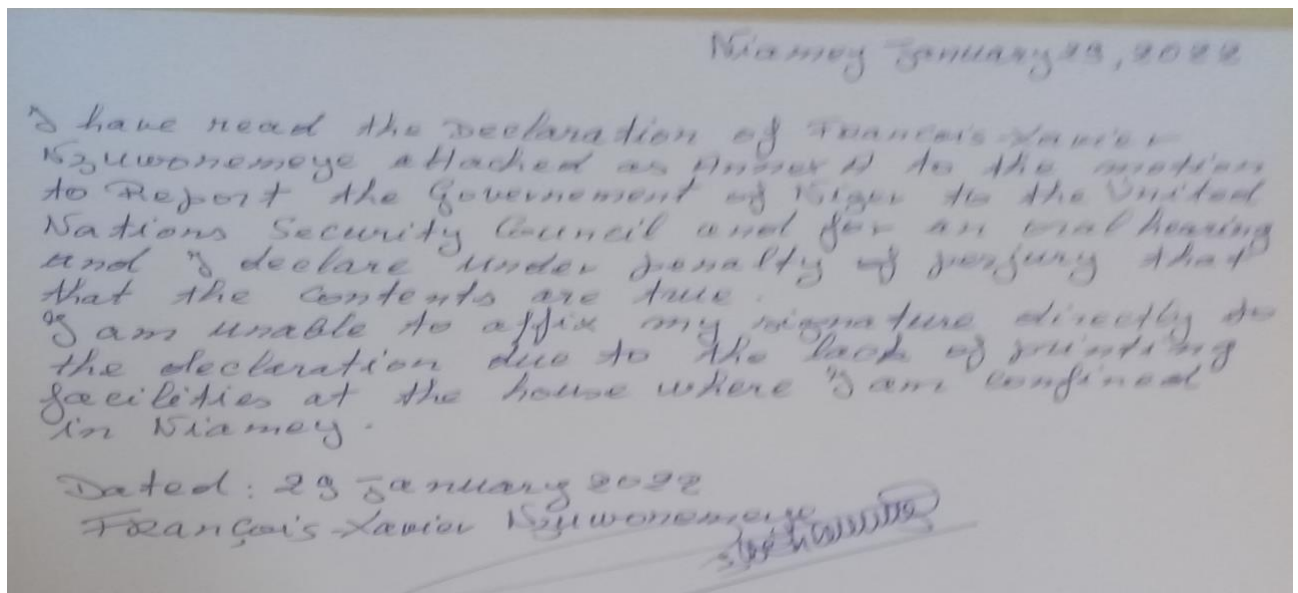 Niamey January 29, 2022
I have read the Declaration of François-Xavier
Nzuwonemeye attached as Annex A to the motion
to Report the Governement of Niger to the United
Nations Security Council and for an oral hearing
and I declare under penalty of perjury that
that the contents are true.
I am unable to affix my signature directly to
the declaration due to the lack of printing
facilities at the house where I am confined
in Niamey.
Dated: 29 January 2022
François-Xavier Nzuwonemeye